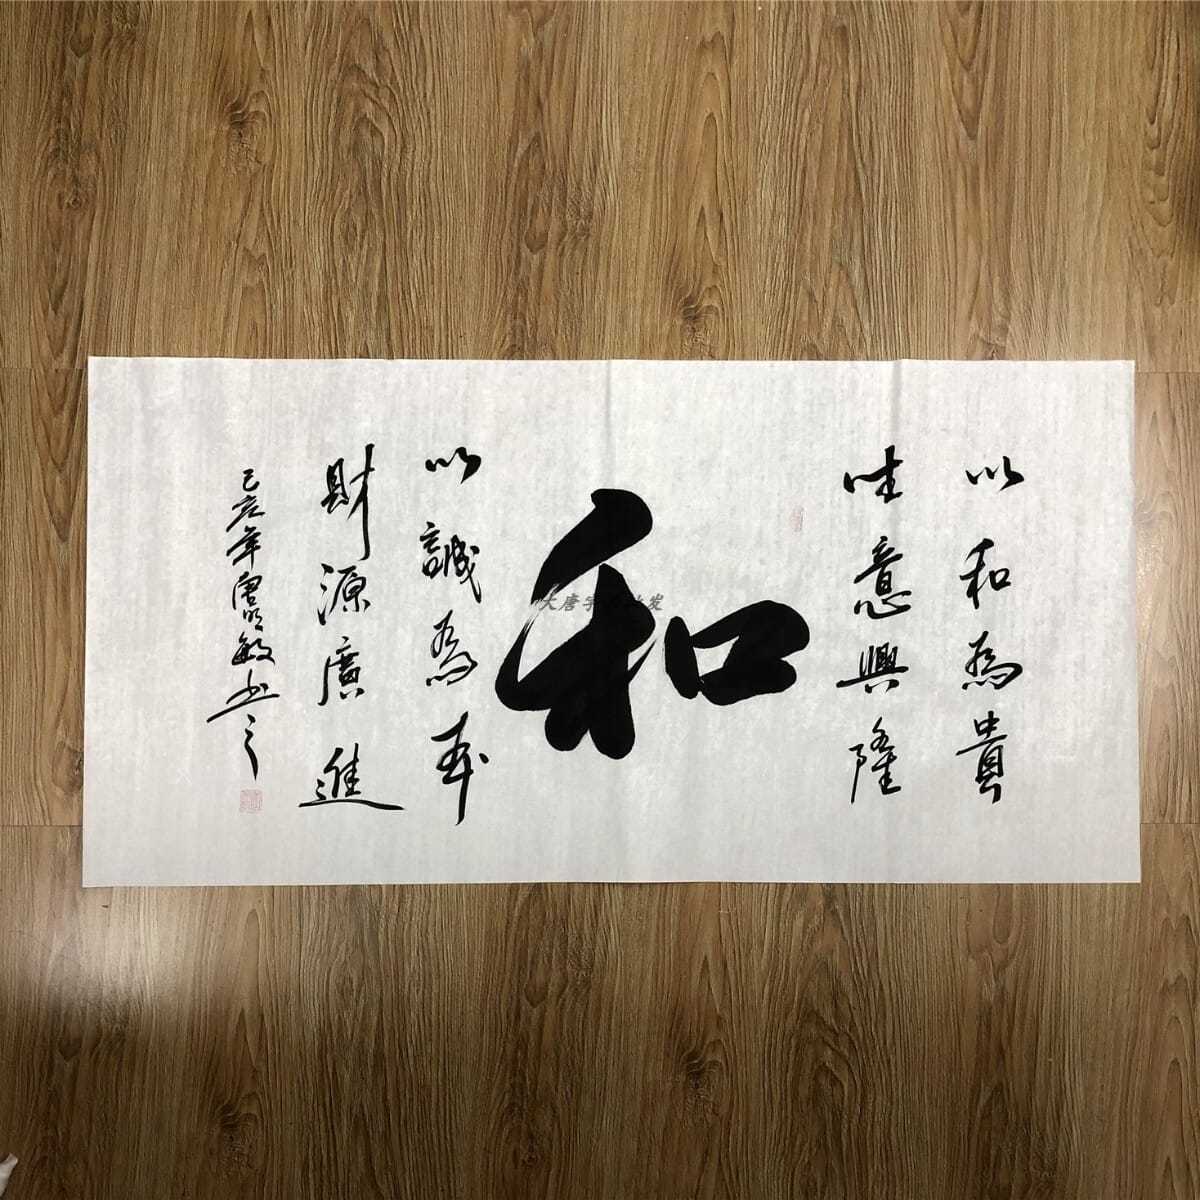 以和為貴
生意興隆
和
以誠為本
財源廣進
己亥年唐明敏书之
大唐字画批发